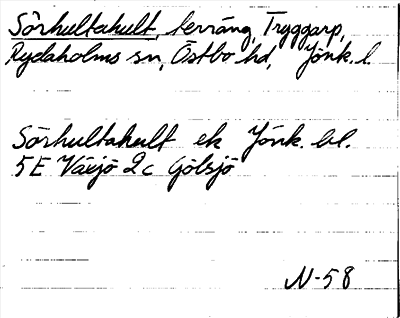 Sörhultakult, terräng, Tryggarp,
Rydaholms sn, Östbo hd, Jönk. l.
Sörhultakult ek Jönk. bl.
5E Växjö 2c Gölsjö
N-58